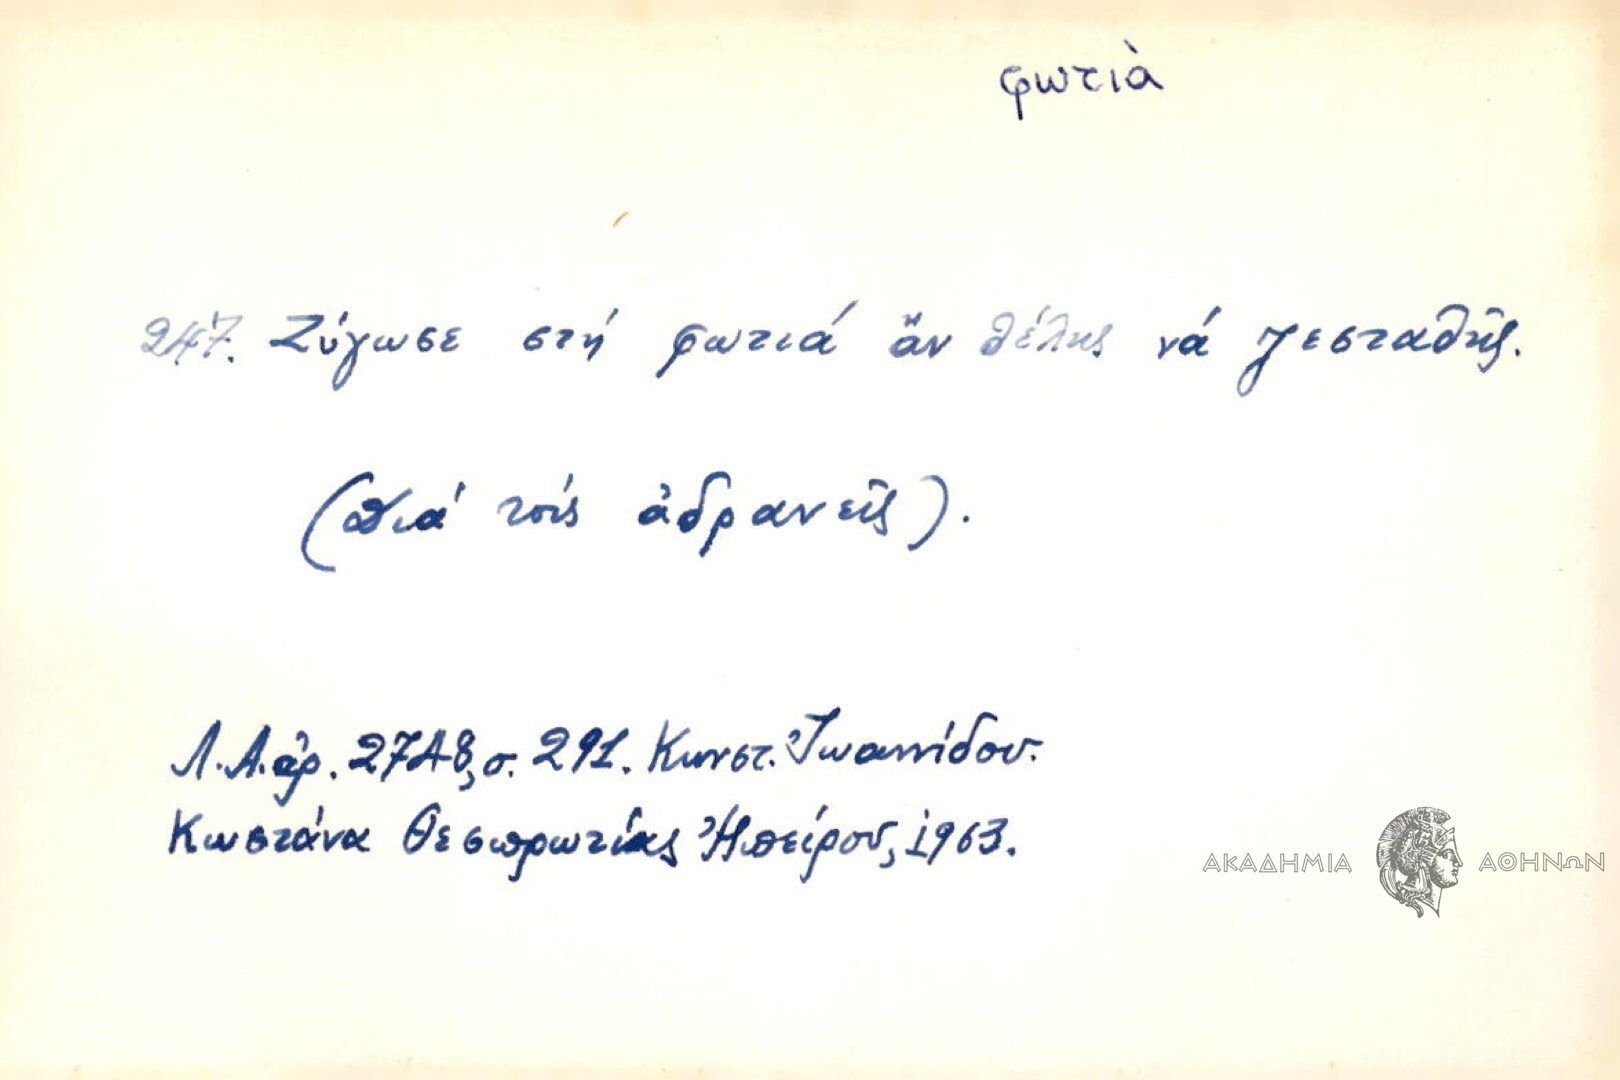 φωτιὰ
247. Ζύγωσε στή φωτιά ἄν θέλης νά ζεσταθῆς.
(Διά τούς ἀδρανεῖς).
Λ.Α. ἀρ. 2748, σ. 291. Κωνστ. Ἰωαννίδου.
Κωστάνα Θεσπρωτίας Ἠπείρου, 1963.
ΑΚΑΔΗΜΙΑ ΑΘΗΝΩΝ